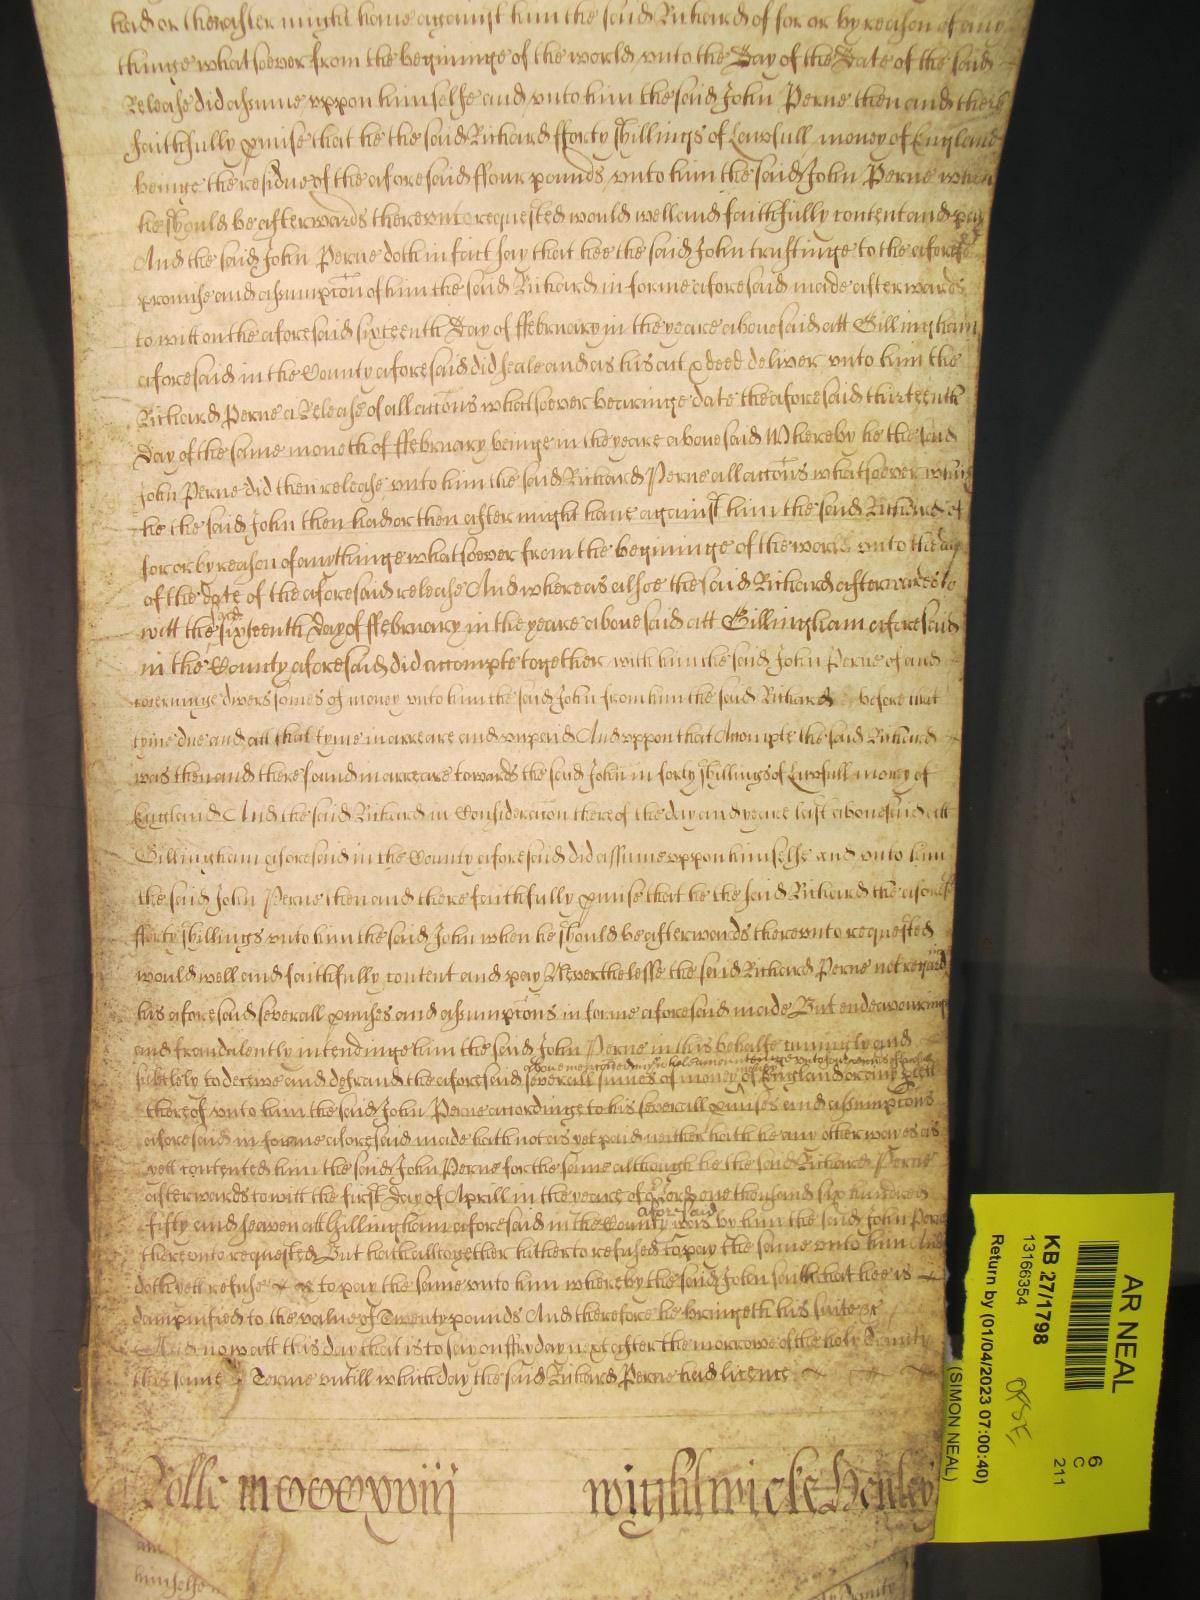 had or thereafter might have against him the said Richard of for or by reason of any
thinge whatsoever from the beginninge of the world unto the Day of the Date of the said
Release did assume uppon himselfe and unto him the said John Perne then and there
faithfully pmise that he the said Richard fforty shillings of Lawfull money of England
beinge the residue of the aforesaid ffour pounds unto him the said John Perne when
he should be afterwards thereunto requested would well and faithfully content and pay
And the said John Perne doth in fact say that hee the said John trustinge to the aforesd
promise and assumpcon of him the said Richard in forme aforesaid made afterwards
to witt on the aforesaid sixteenth Day of ffebruary in the yeare abovesaid att Gillingham
aforesaid in the County aforesaid did seale and as his act & deed deliver unto him the
Richard Perne a Release of all accons whatsoever bearinge date the aforesaid thirteenth
Day of the same moneth of ffebruary beinge in the yeare abovesaid Whereby he the said
John Perne did then release unto him the said Richard Perne all accons whatsoever which
he the said John then had or then after might have against him the said Richard of
for or by reason of any thinge whatsoever from the beginninge of the world unto the day
of the date of the aforesaid release And whereas alsoe the said Richard afterwards to
witt the said sixteenth Day of ffebruary in the yeare abovesaid att Gillingham aforesaid
in the County aforesaid did accompte together with him the said John Perne of and
concerninge divers somes of money unto him the said John from him the said Richard before that
tyme due and att that tyme in arreare and unpaid And uppon that Accompte the said Richard
was then and there found in arreare towards the said John in forty shillings of Lawfull money of
England And the said Richard in Consideracon thereof the day and yeare last abovesaid att
Gillingham aforesaid in the County aforesaid did assume uppon himselfe and unto him
the said John Perne then and there faithfully pmise that he the said Richard the aforesd
fforty shillings unto him the said John when he should be afterwards thereunto requested
would well and faithfully content and pay Neverthelesse the said Richard Perne not regard
his aforesaid severall pmises and assumpcons in forme aforesaid made But endeavouringe
and fraudalently intendinge him the said John Perne in this behalfe cunningly and
subtlely to deceive and defraud the aforesaid severall sumes of money of England or any
thereof unto him the said John Perne accordinge to his severall pmises and assumpcons
aforesaid in forme aforesaid made hath not as yet paid neither hath he any other wayes as
yett contented him the said John Perne for the same although he the said Richard Perne
afterwards to witt the first Day of Aprill in the yeare of or Lord one thousand six hundred
fifty and seaven att Gillingham aforesaid in the County aforesaid was by him the said John Perne
thereunto requested But hath alltogether hitherto refused to pay the same unto him And
doth yett refuse to pay the same unto him whereby the said John saith that hee is
dampnified to the value of Twenty pounds And therefore he bringeth his suite &c
And now att this day that is to say on ffryday next after the morrow of the holy Trinity
this same Terme untill which day the said Richard Perne had licence
Rolle
wightwicke Henley
AR NEAL
6
C
211
KB 27/1798
13166354
Return by (01/04/2023 07:00:40)
(SIMON NEAL)